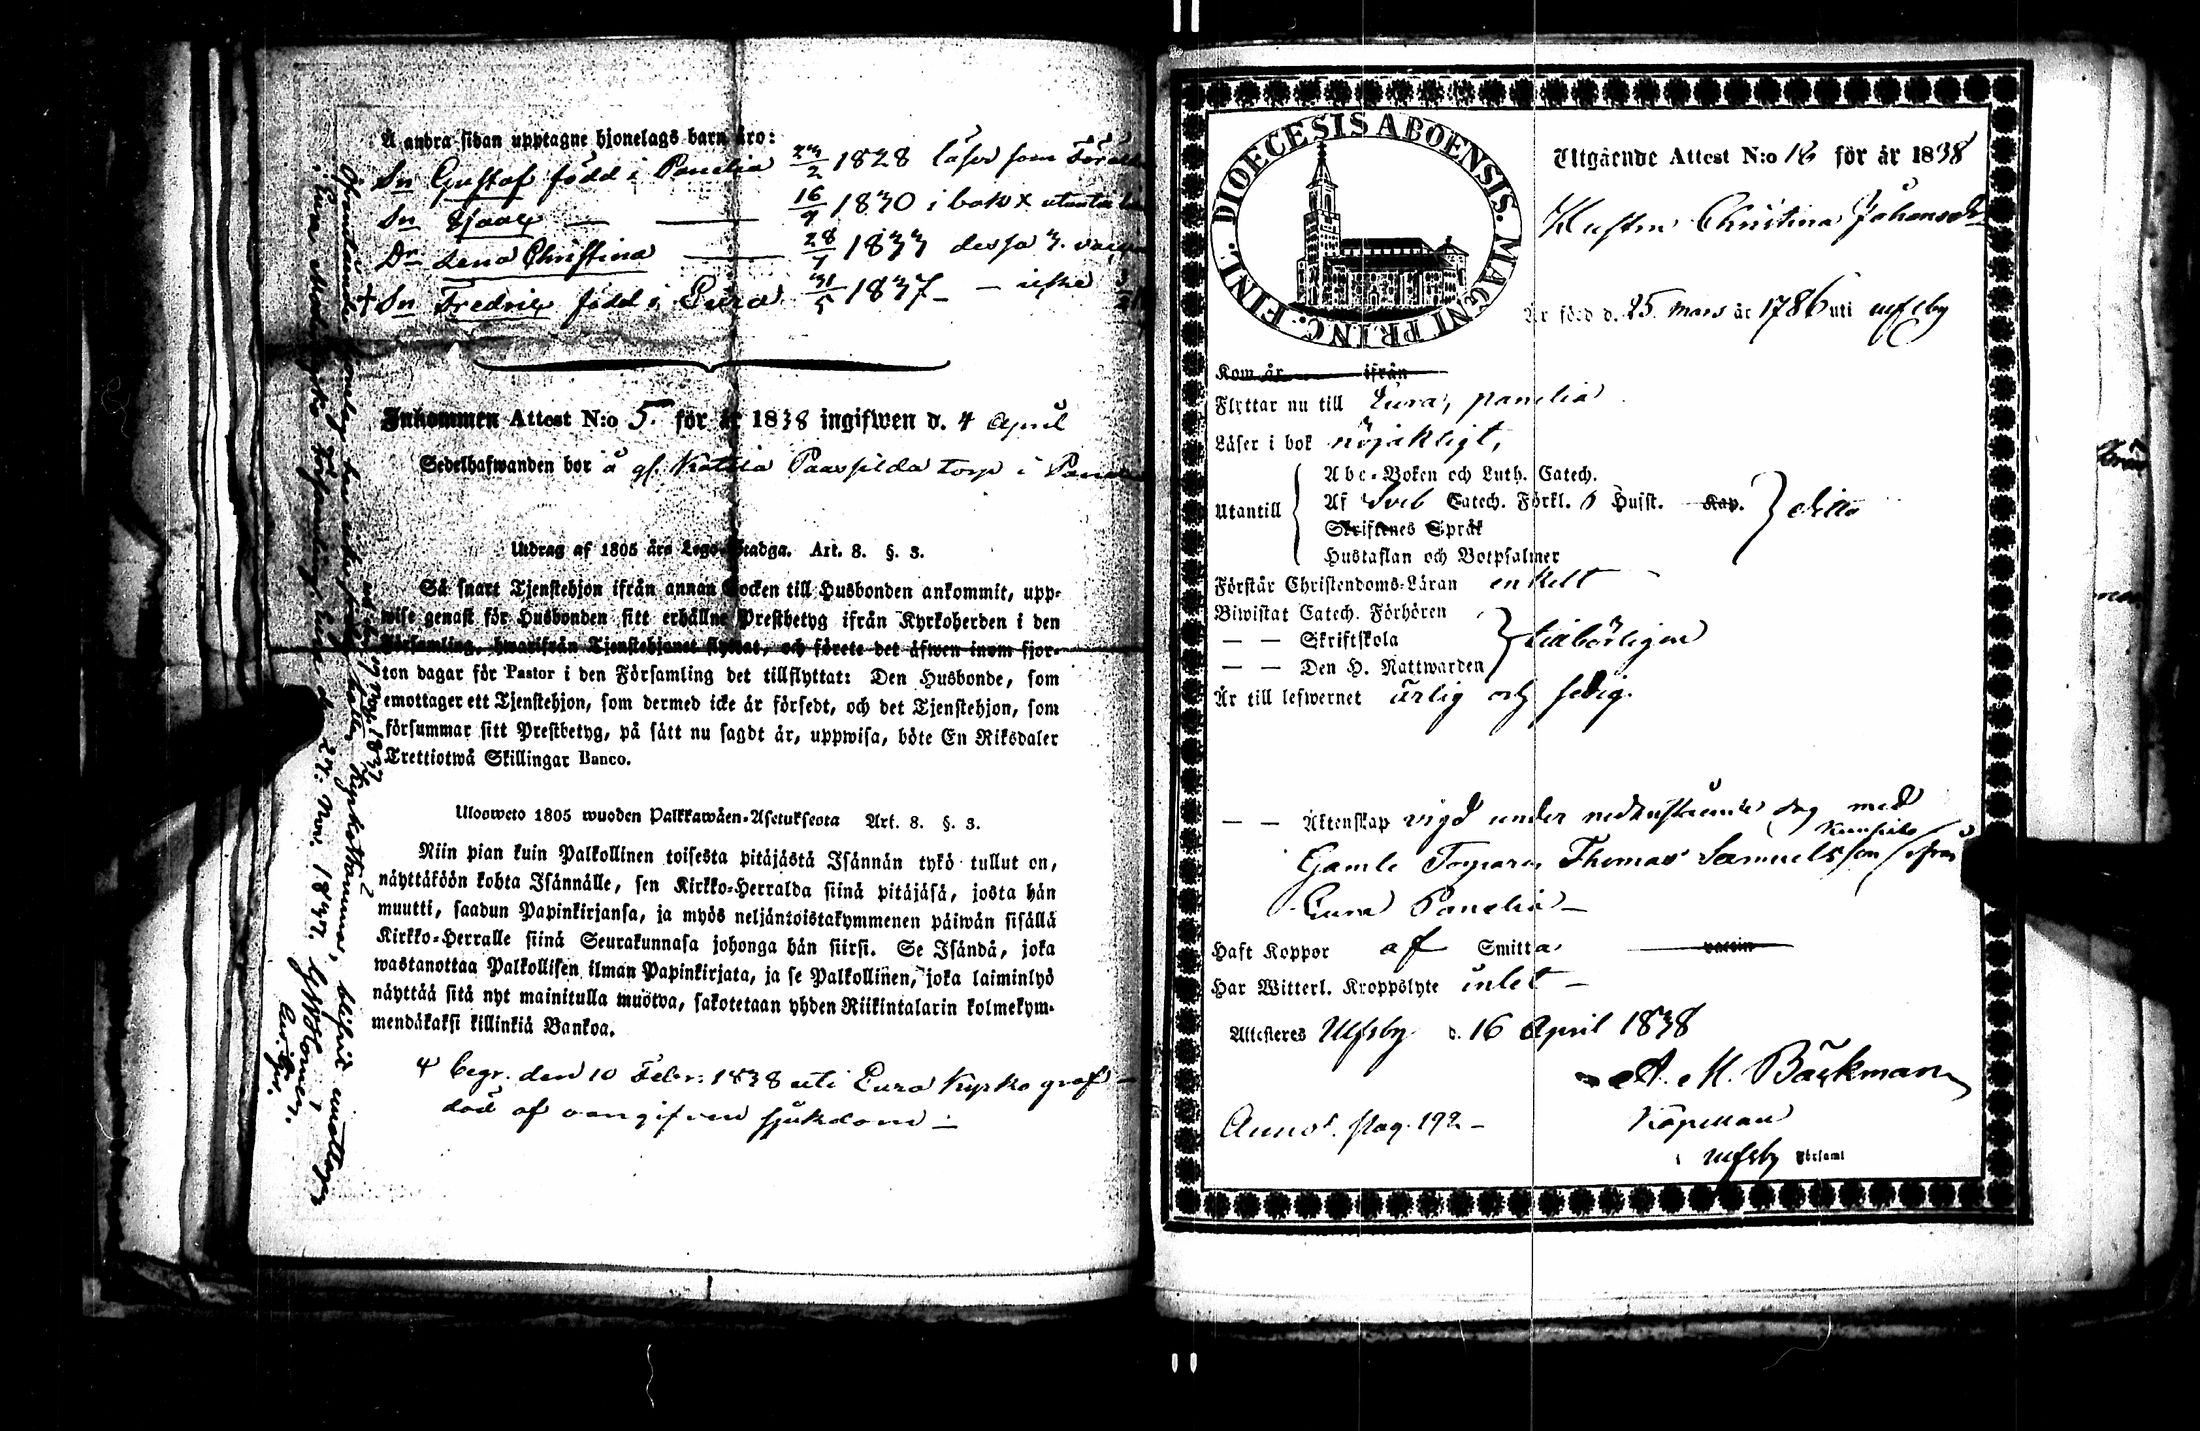 Å andra sidan upptagne hjonelags barn äro:
Sn Gustaf född i Panelia 23/2 1828 läser som
Sn Isaac — — 16/9 1830 i bok x utantill
Dr Lena Christina — 28/7 1833 dessa 3.
+ Sn Fredric född i Eura 31/5 1837 — icke
Inkommen Attest N:o 5. för år 1838 ingifwen d. 4 April
Sedelhafwanden bor å gl. Kattila Paassilda torp i
Utdrag af 1805 års Lego-Stadga. Art. 8. §. 3.
Så snart Tjenstehjon ifrån annan Socken till Husbonden ankommit, upp-
wise genast för Husbonden sitt erhållne Prestbetyg ifrån Kyrkoherden i den
Församling, hwarifrån Tjenstehjonet flyttat, och förete det äfwen inom fjor-
ton dagar för Pastor i den Församling det tillflyttat: Den Husbonde, som
emottager ett Tjenstehjon, som dermed icke är försedt, och det Tjenstehjon, som
försummar sitt Prestbetyg, på sätt nu sagdt är, uppwisa, böte En Riksdaler
Trettiotwå Skillingar Banco.
Ulosweto 1805 wuoden Palkkawäen-Asetuksesta Art. 8. §. 3.
Niin pian kuin Palkollinen toisesta pitäjästä Isännän tykö tullut on,
näyttäköön kohta Isännälle, sen Kirkko-Herralda siinä pitäjäsä, josta hän
muutti, saadun Papinkirjansa, ja myös neljäntoistakymmenen päiwän sisällä
Kirkko-Herralle siinä Seurakunnasa johonga hän siirsi. Se Isändä, joka
wastanottaa Palkollisen ilman Papinkirjata, ja se Palkollinen, joka laiminlyö
näyttää sitä nyt mainitulla muotwa, sakotetaan yhden Riikintalarin kolmekym-
mendäkaksi killinkiä Bankoa.
+ begr. den 10 Febr: 1838 uti Eura Kyrko graf —
död af oangifven sjukdom —
DIOECESIS ABOENSIS. MAGNI PRINC. FINL.
Utgående Attest N:o 16 för år 1838
Christina Johansdr
Är född d. 25 mars år 1786 uti Ulfsby
Kom år ifrån
Flyttar nu till Eura, panelia
Läser i bok nöjaktligt,
Abc-Boken och Luth. Catech.
Utantill Af Sveb Catech. Förkl. Hufst. Kap. ditto
Skriftenes Språk
Hustaflan och Botpsalmer
Förstår Christendoms-Läran enkelt
Biwistat Catech. Förhören
— — Skriftskola
— — Den H. Nattwarden
Är till lefwernet ärlig och sedig.
— — Äktenskap vigd under nedanstående dag med
Gamle Thomas Samuelsson
Eura Panelia —
Haft Koppor af Smitta vaccin
Har Witterl. Kroppslyte intet —
Attesteres Ulfsby d. 16 April 1838
A. M. Bäckman
Kapellan
Annot. pag. 192. —
i Ulfsby Församl